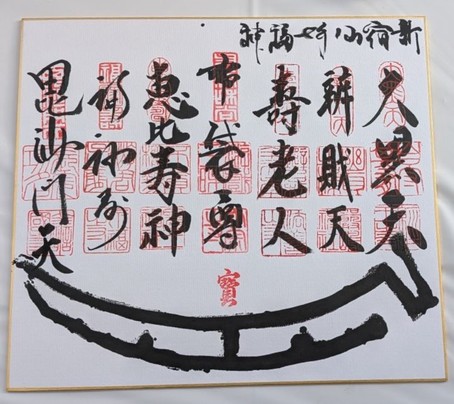 新宿山ノ手七福神
大黒天
辨財天
壽老人
布袋尊
恵比寿神
福禄寿
毘沙門天
寳